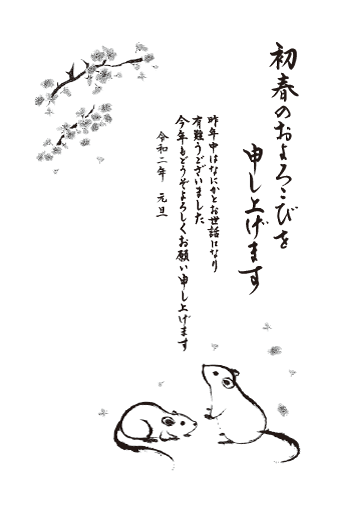 初春のおよろこびを
申し上げます
昨年中はなにかとお世話になり
有難うございました
今年もどうぞよろしくお願い申し上げます
令和二年 元旦